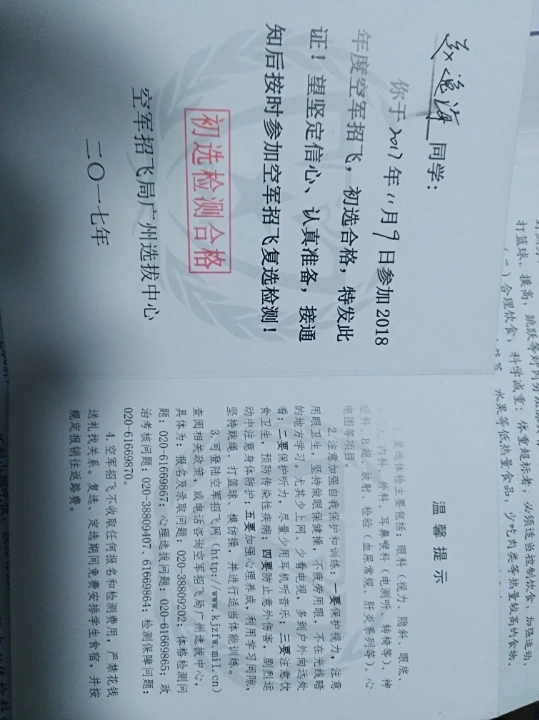 同学：
你于2017年11月9日参加2018
年度空军招飞，初选合格，特发此
证！望坚定信心、认真准备，接通
知后按时参加空军招飞复选检测！
初选检测合格
空军招飞局广州选拔中心
二〇一七年
温馨提示
1.复选体检主要包括：眼科（视力、隐斜、眼底、
内科、外科、耳鼻喉科（电测听、转椅等）、神
经科、B超、放射、检验（血尿常规、肝炎系列等）、心
电图等项目。
2.注意加强自我保护和训练：一要保护视力。注意
用眼卫生，坚持做眼保健操，不疲劳用眼，不在光线暗
的地方学习。尤其少上网，少看电视，多到户外向远处
看；二要保护听力。尽量少用耳机听音乐；三要注意饮
食卫生，预防传染性疾病；四要防止意外伤害，剧烈运
动中注意身体防护；五要加强心理养成，利用学习间隙，
坚持跳绳、打篮球、模仿操，并进行适当体能训练。
3.可登陆空军招飞网（http://www.kjzfw.mil.cn）
查阅相关政策，或电话咨询空军招飞局广州选拔中心，
具体为：报名及录取问题：020-38809202；体格检测问
题：020-61669867；心理选拔问题：020-61669865；政
治考核问题：020-38809407、61669864；检测保障问题：
020-61669870。
4.空军招飞不收取任何报名和检测费用，严禁花钱
送礼找关系。复选、定选期间免费安排学生食宿，并按
规定报销往返路费。
打篮球、摸高、跳跃等
）合理饮食，科学减重：体重超标者，必须适当控制饮食、加强运动，
水果等低热量食品，少吃肉类等热量较高的食物，